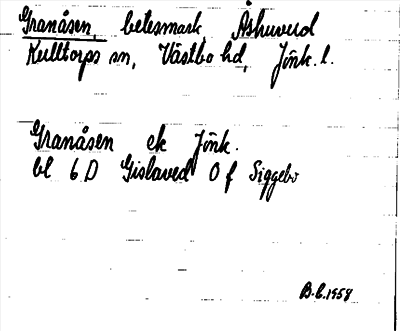 Granåsen, betesmark Åshuvud
Kulltorps sn, Västbo hd, Jönk. l.
Granåsen ek Jönk.
bl 6 D Gislaved 0 f Siggebo
B.E. 1958